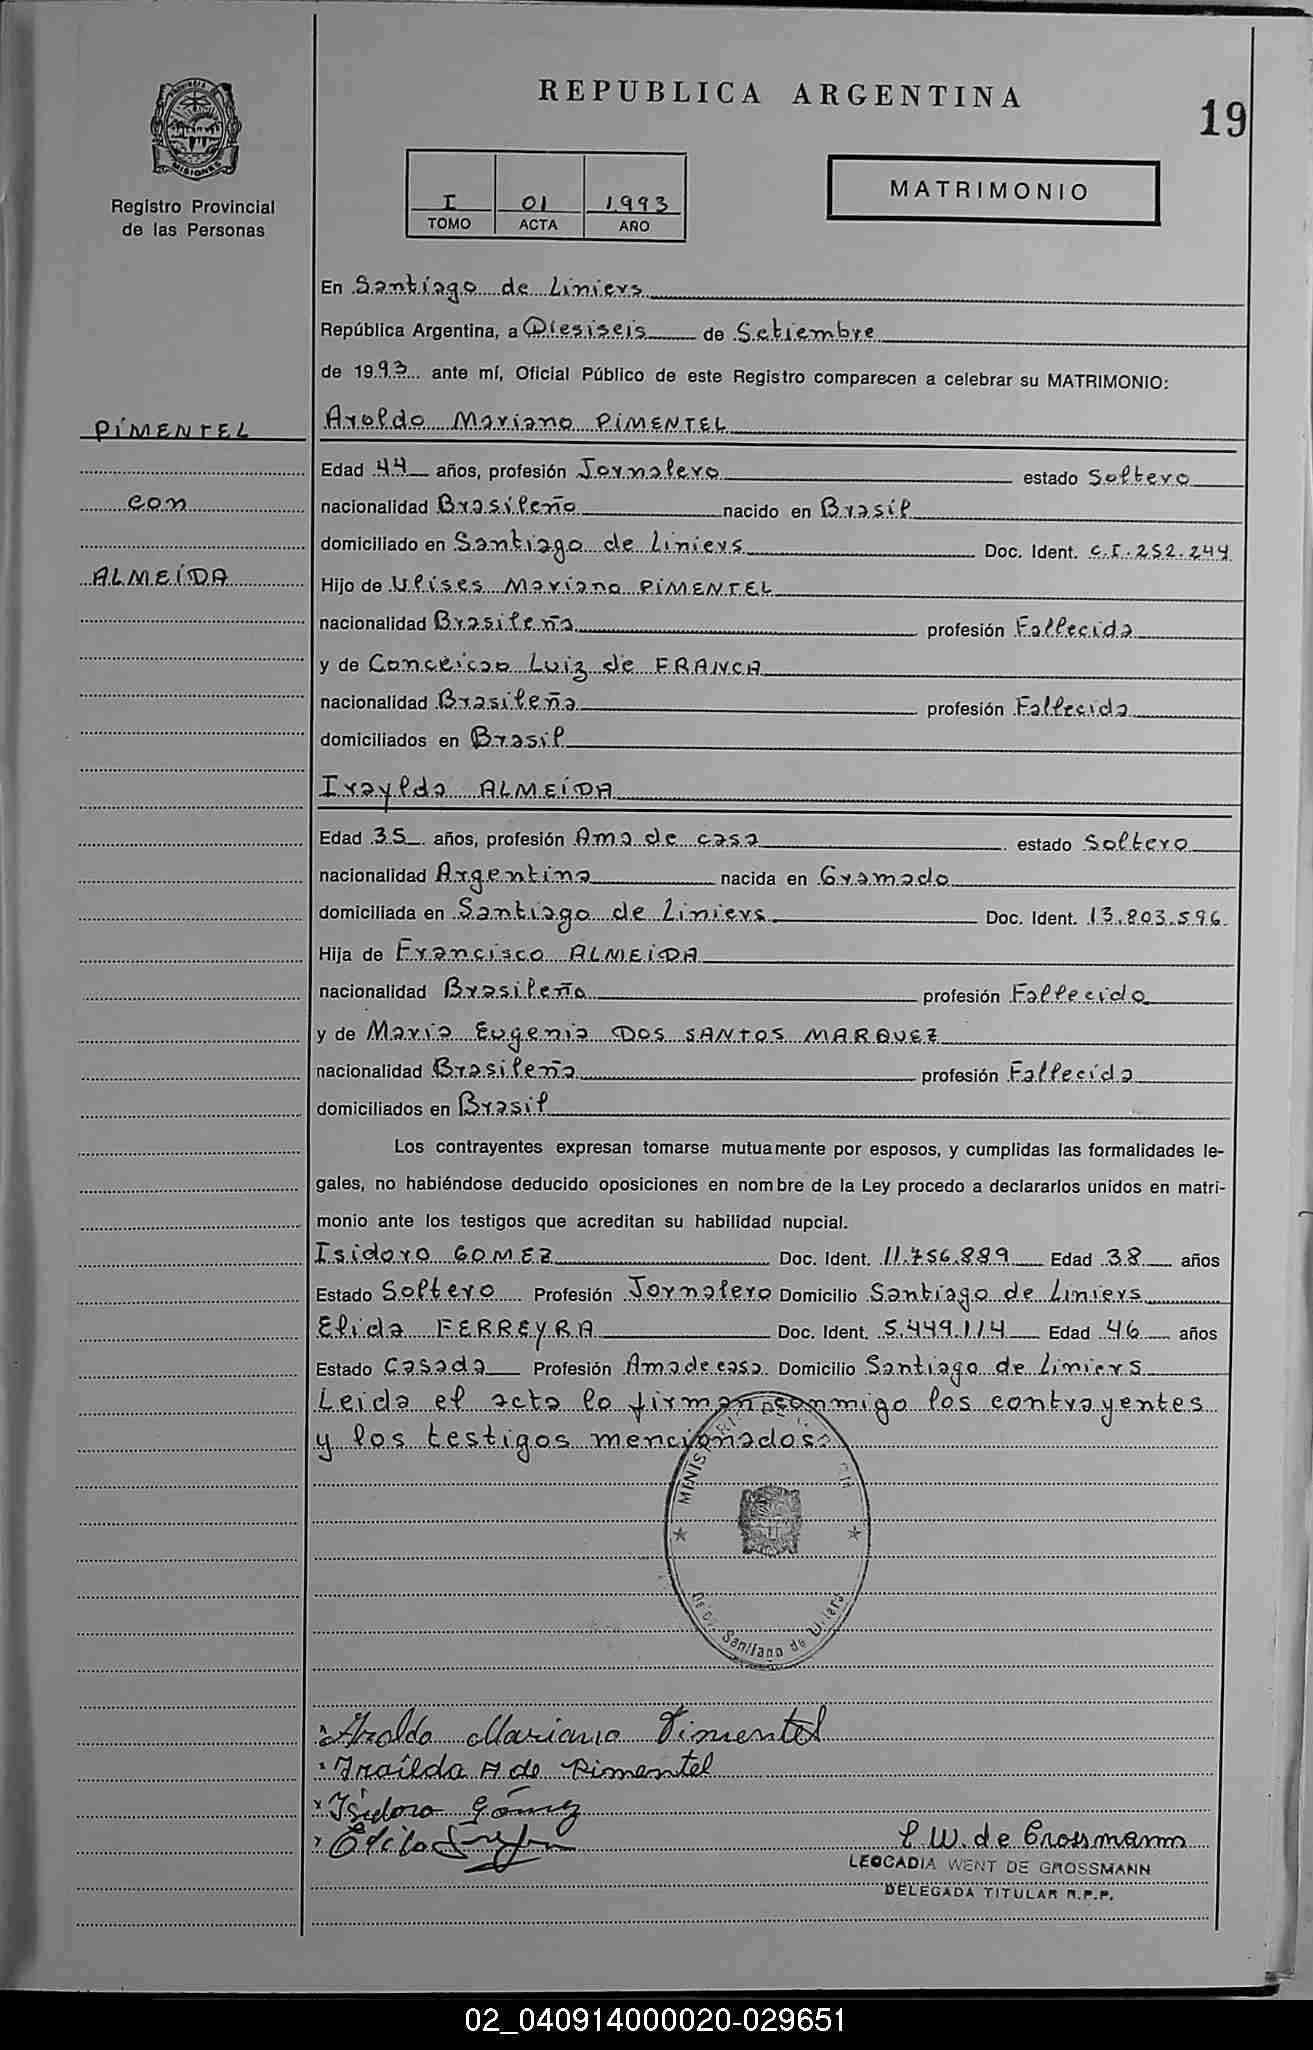 REPUBLICA ARGENTINA
19
PROVINCIA DE
MISIONES
Registro Provincial
de las Personas
I 01 1993
TOMO ACTA AÑO
MATRIMONIO
En Santiago de Liniers
República Argentina, a Diesiseis de Setiembre
de 1993 ante mí, Oficial Público de este Registro comparecen a celebrar su MATRIMONIO:
PIMENTEL
con
ALMEIDA
Aroldo Mariano PIMENTEL
Edad 44 años, profesión Jornalero estado Soltero
nacionalidad Brasileño nacido en Brasil
domiciliado en Santiago de Liniers Doc. Ident. C.I. 252.244
Hijo de Ulises Mariano PIMENTEL
nacionalidad Brasileña profesión Fallecida
y de Conceicao Luiz de FRANCA
nacionalidad Brasileña profesión Fallecida
domiciliados en Brasil
Iraylda ALMEIDA
Edad 35 años, profesión Ama de casa estado Soltero
nacionalidad Argentina nacida en Gramado
domiciliada en Santiago de Liniers Doc. Ident. 13.803.596
Hija de Francisco ALMEIDA
nacionalidad Brasileño profesión Fallecido
y de Maria Eugenia DOS SANTOS MARQUEZ
nacionalidad Brasileña profesión Fallecida
domiciliados en Brasil
Los contrayentes expresan tomarse mutuamente por esposos, y cumplidas las formalidades le-
gales, no habiéndose deducido oposiciones en nombre de la Ley procedo a declararlos unidos en matri-
monio ante los testigos que acreditan su habilidad nupcial.
Isidoro GOMEZ Doc. Ident. 11.756.889 Edad 38 años
Estado Soltero Profesión Jornalero Domicilio Santiago de Liniers
Elida FERREYRA Doc. Ident. 5.449.114 Edad 46 años
Estado Casada Profesión Ama de casa Domicilio Santiago de Liniers
Leida el acta lo firman conmigo los contrayentes
y los testigos mencionados.
Santiago de
Aroldo Mariano Pimentel
Iraílda A de Pimentel
Isidoro Gómez
L W. de Grossmann
LEOCADIA WENT DE GROSSMANN
DELEGADA TITULAR R.P.P.
02_040914000020-029651